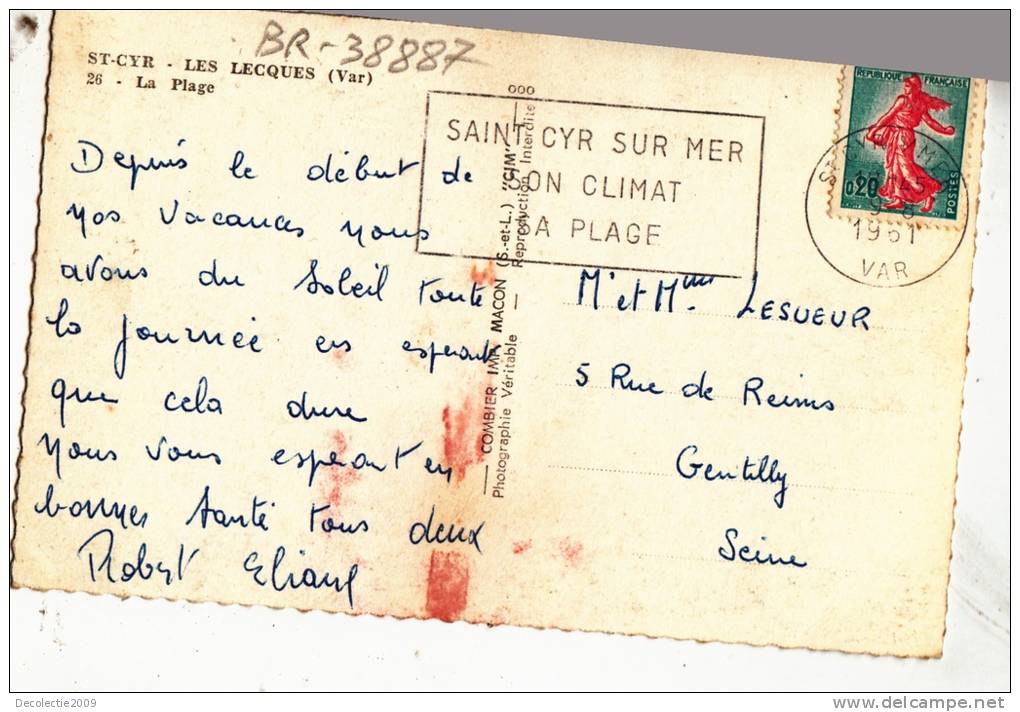 BR-38887
ST-CYR - LES LECQUES (Var)
26 - La Plage
Depuis le début de
nos vacances nous
avons du soleil toute
la journée en espérant
que cela dure
nous vous espérant en
bonnes santé tous deux
Robert Eliane
COMBIER IMP. MACON (S.-et-L.) "CIM"
Photographie Véritable — Reproduction Interdite
SAINT CYR SUR MER
SON CLIMAT
SA PLAGE
REPUBLIQUE FRANÇAISE
0,20
POSTES
1961
VAR
Mr et Mme LESUEUR
5 Rue de Reims
Gentilly
Seine
Decolectie2009
www.delcampe.net